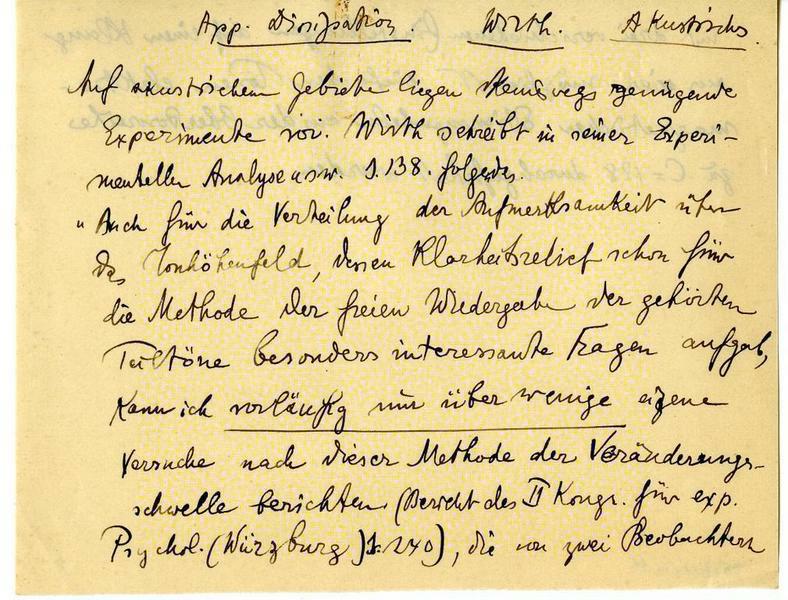 App. Dissipation. Wirth. Akustisches.
Auf akustischem Gebiete liegen keineswegs genügende
Experimente vor. Wirth schreibt in seiner Experi-
mentellen Analyse usw. S. 138. folgendes.
"Auch für die Verteilung der Aufmerksamkeit über
das Tonhöhenfeld, dessen Klarheitsrelief schon für
die Methode der freien Wiedergabe der gehörten
Teiltöne besonders interessante Fragen aufgab,
kann ich vorläufig nur über wenige eigene
Versuche nach dieser Methode der Veränderungs-
schwelle berichten (Bericht des II Kongr. für exp.
Psychol. (Würzburg) S. 240), die von zwei Beobachtern